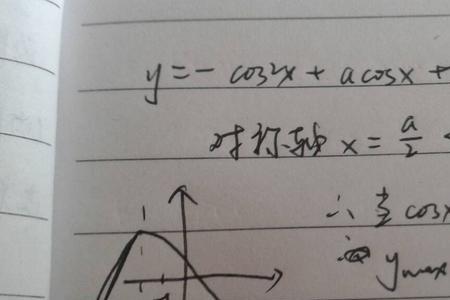 y = - cos²x + a cosx +
对称轴 x = a/2 <
∴ 当 cosx
ymax